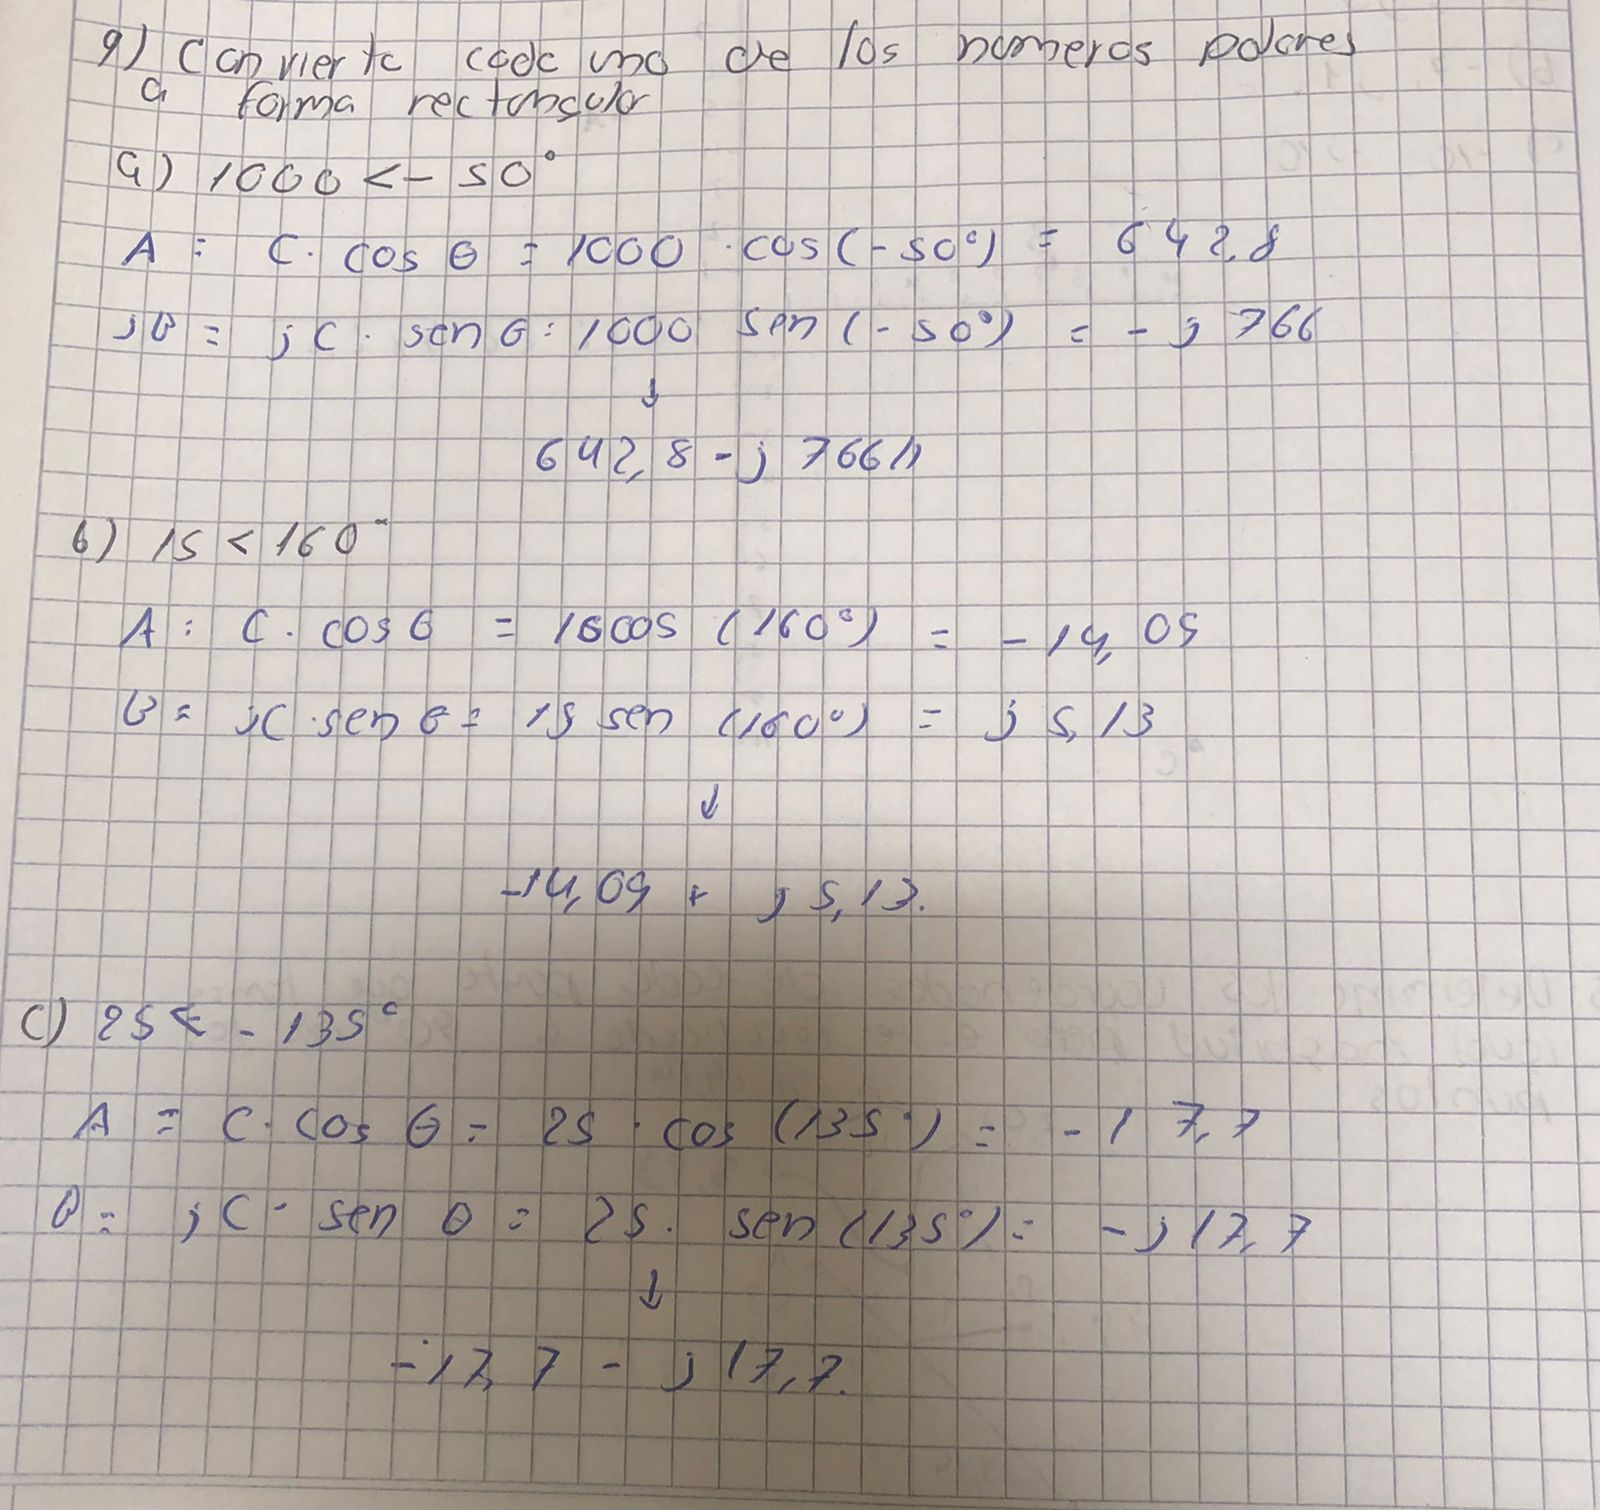 9) Convierte cada uno de los números polares
a forma rectangular
a) 1000 < - 50°
A = C. cos θ = 1000 . cos (-50°) = 642,8
jB = jC . sen θ = 1000 sen (-50°) = - j 766
↓
642,8 - j 766 //
b) 15 < 160°
A = C. cos θ = 15 cos (160°) = -14,09
B = jC . sen θ = 15 sen (160°) = j 5,13
↓
-14,09 + j 5,13.
c) 25 < - 135°
A = C. cos θ = 25 . cos (135°) = -17,7
B = jC . sen θ = 25. sen (135°) = - j 17,7
↓
-17,7 - j 17,7.